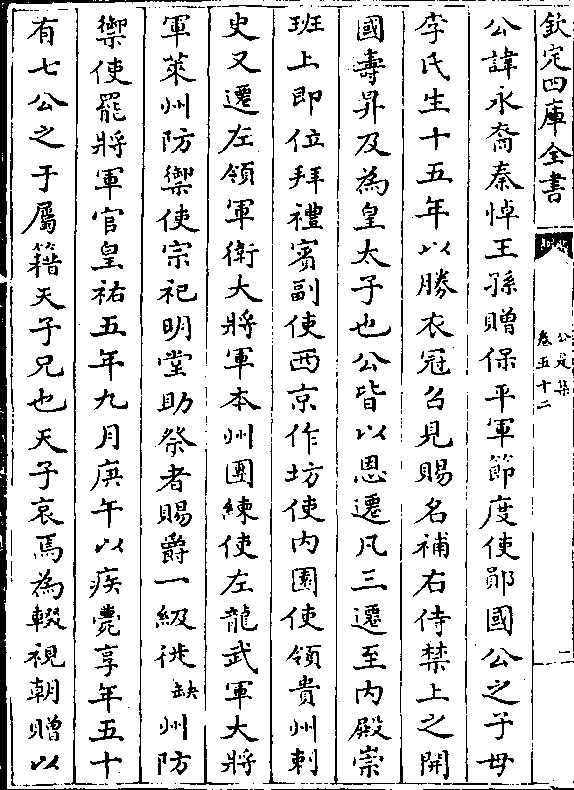 欽定四庫全書
公是集
卷五十二
二
公諱永裔秦悼王孫贈保平軍節度使鄖國公之子母
李氏生十五年以勝衣冠召見賜名補右侍禁上之開
國壽昇及為皇太子也公皆以恩遷凡三遷至内殿崇
班上即位拜禮賓副使西京作坊使内園使領貴州刺
史又遷左領軍衛大將軍本州團練使左龍武軍大將
軍萊州防禦使宗祀明堂助祭者賜爵一級徙缺州防
禦使罷將軍官皇祐五年九月庚午以疾薨享年五十
有七公之于屬籍天子兄也天子哀焉為輟視朝贈以